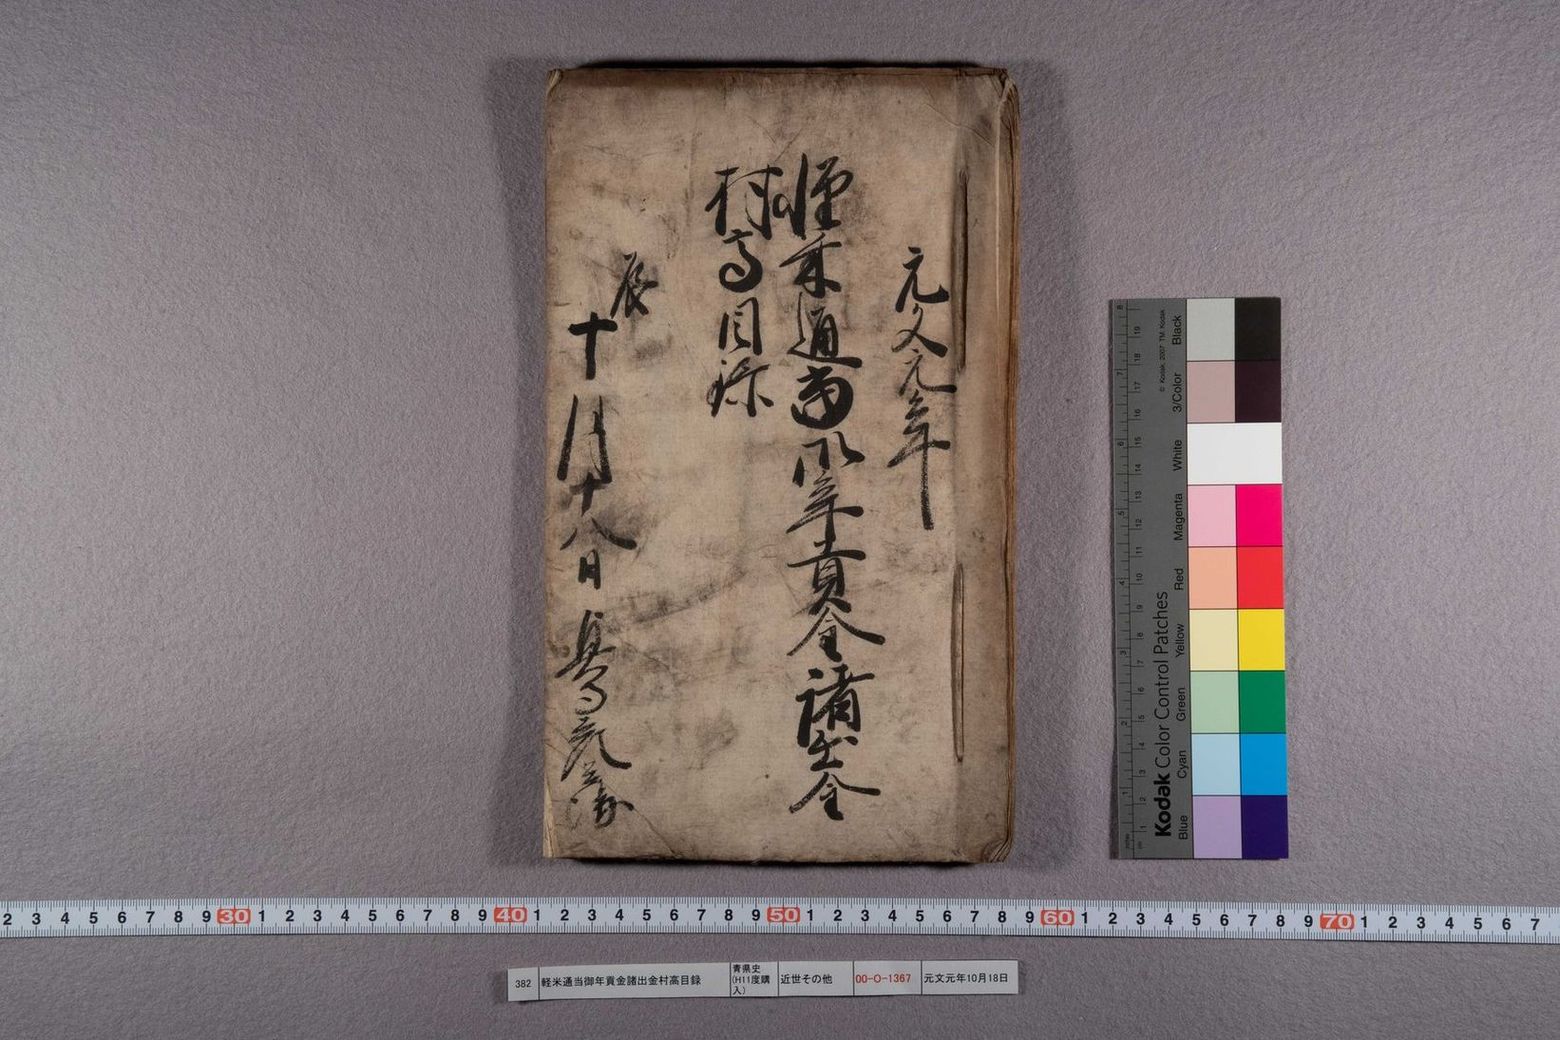 元文元年
軽米通当御年貢金諸出金
村高目録
辰
十月十八日
Kodak Color Control Patches
© Kodak, 2007 TM: Kodak
Blue Cyan Green Yellow Red Magenta White 3/Color Black
2 3 4 5 6 7 8 9 30 1 2 3 4 5 6 7 8 9 40 1 2 3 4 5 6 7 8 9 50 1 2 3 4 5 6 7 8 9 60 1 2 3 4 5 6 7 8 9 70 1 2 3 4 5 6 7
382 軽米通当御年貢金諸出金村高目録 青県史(H11度購入) 近世その他 00-O-1367 元文元年10月18日